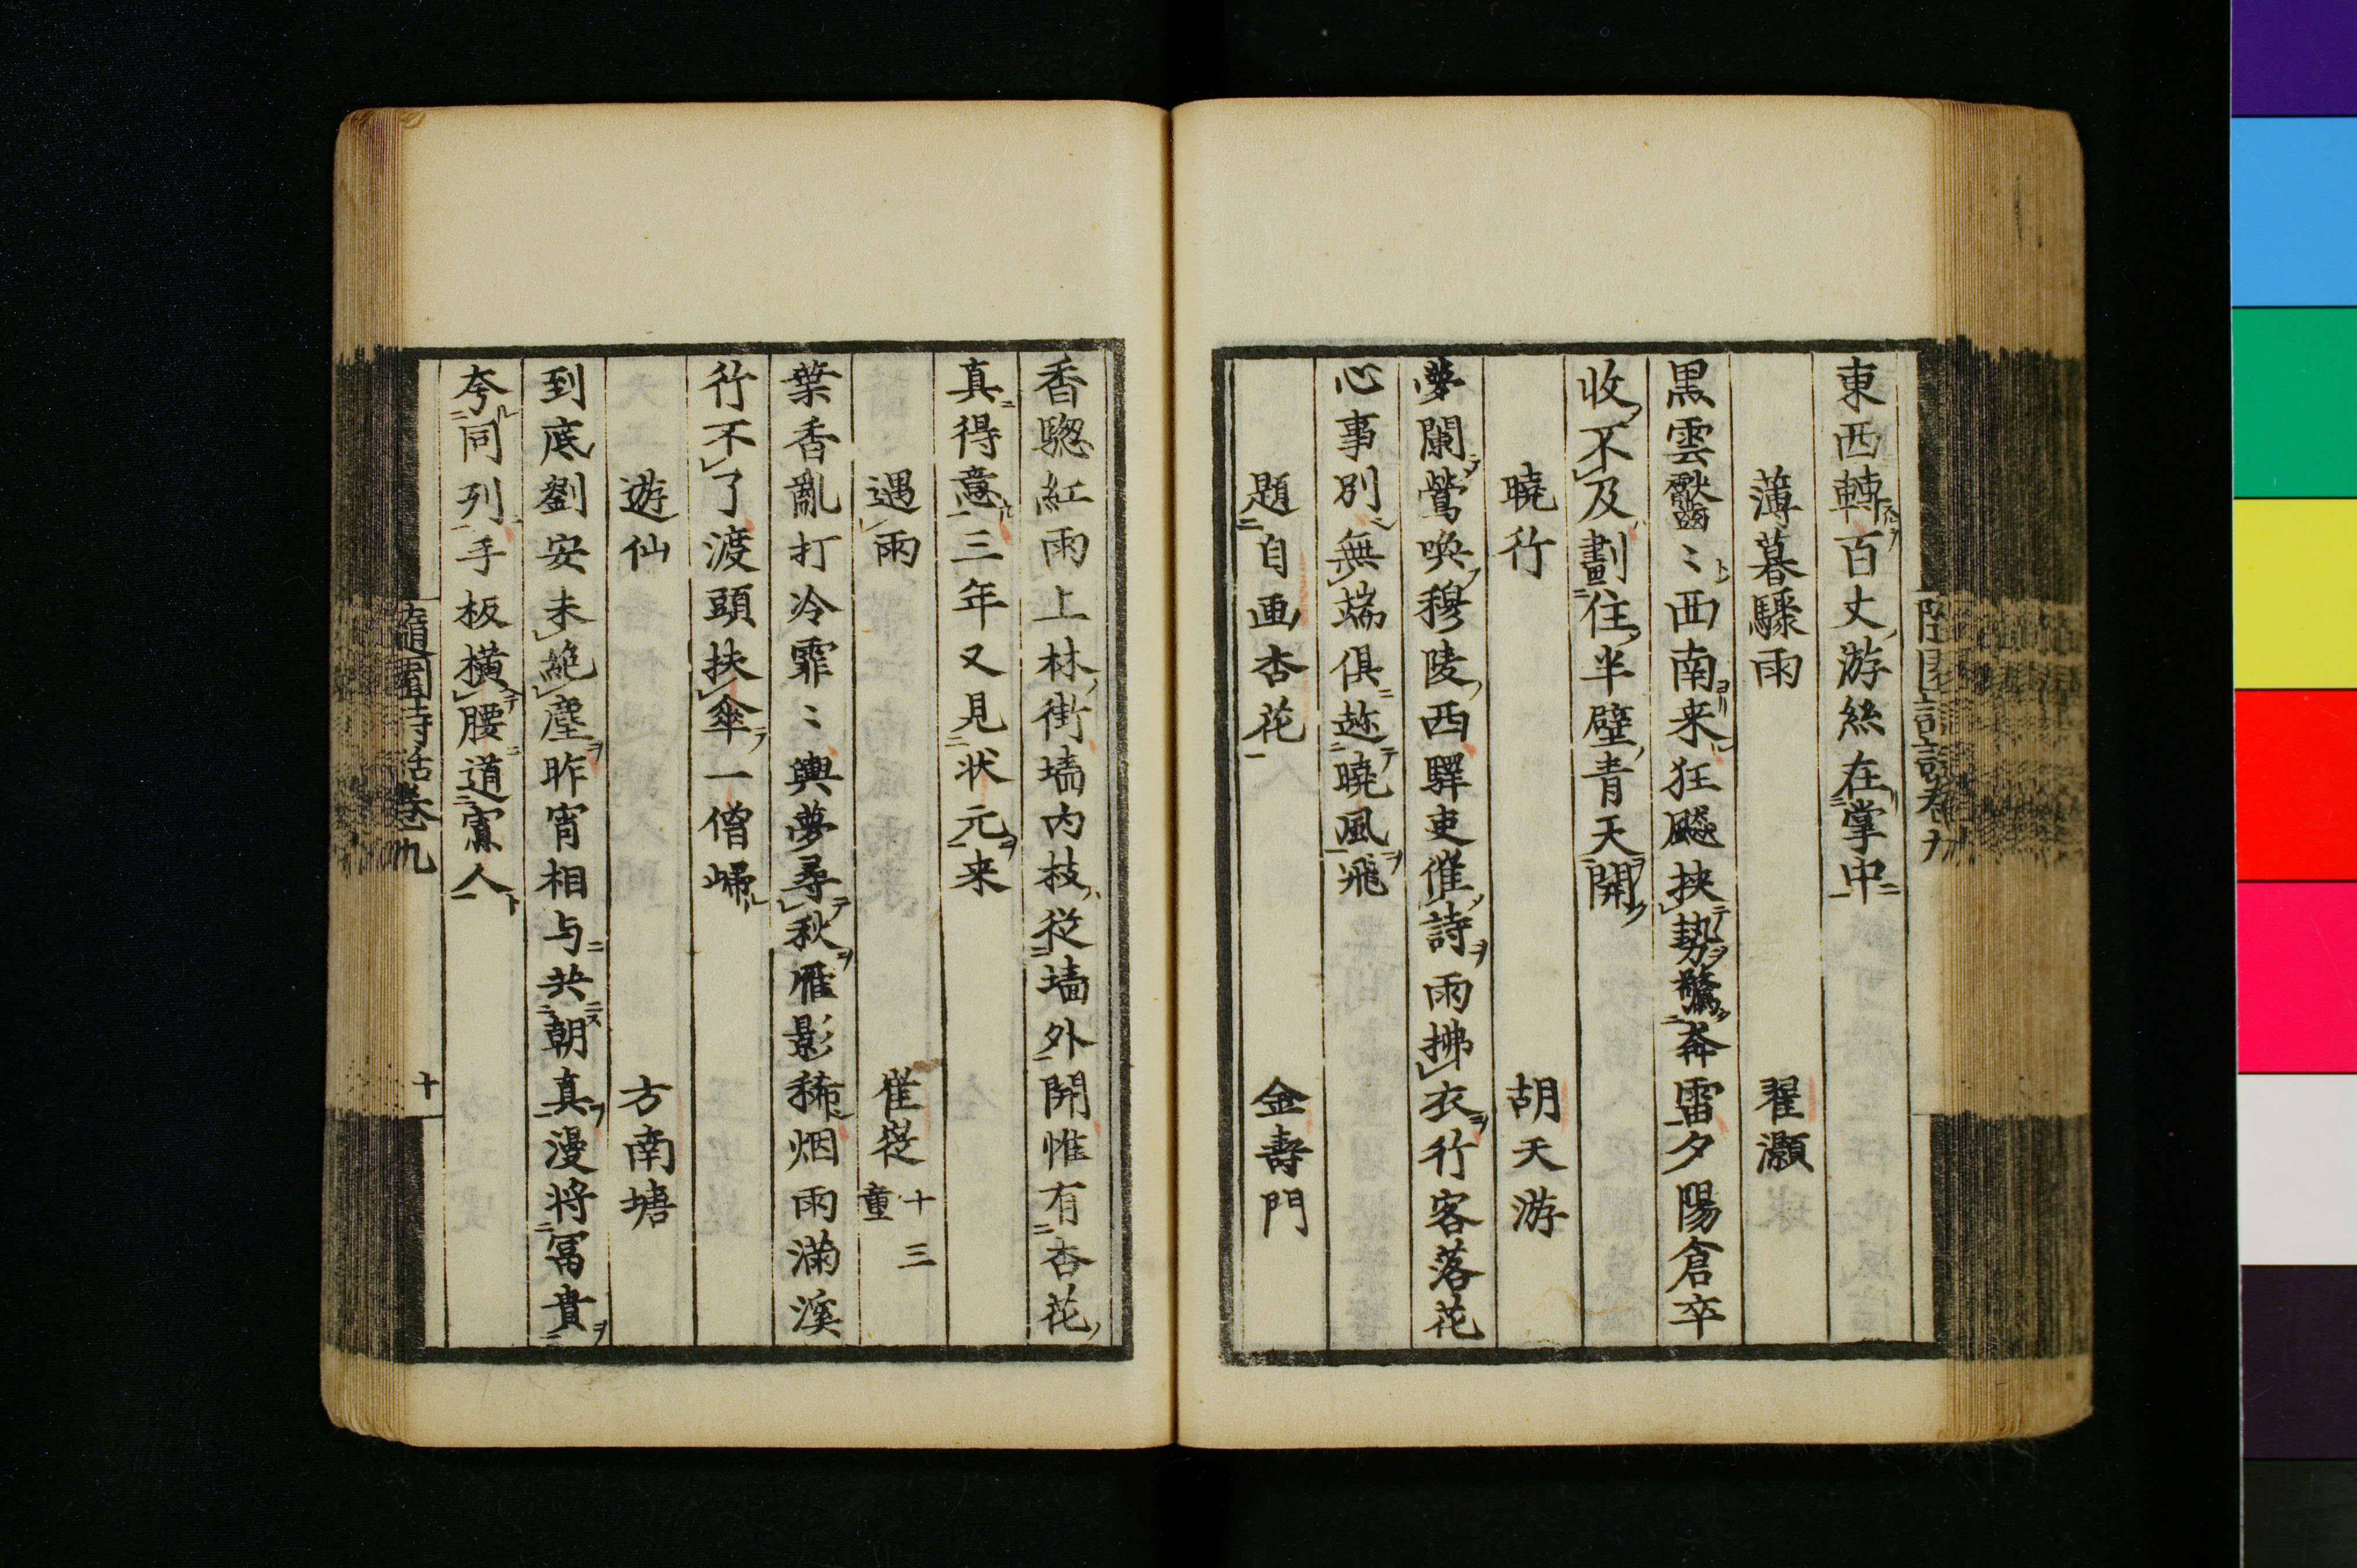 東西轉百丈游絲在掌中
薄暮驟雨 翟灝
黒雲靆〻西南来狂飈挾勢驚奔雷夕陽倉卒
收不及劃住半壁青天開
曉行 胡天游
夢闌鶯喚穆陵西驛吏催詩雨拂衣行客落花
心事別無端俱趂曉風飛
題自画杏花 金壽門
香騘紅雨上林街墻内枝従墻外開惟有杏花
真得意三年又見状元来
遇雨 崔漎 十三童
葉香亂打冷霏〻輿夢尋秋雁影稀烟雨滿溪
行不了渡頭扶傘一僧歸
遊仙 方南塘
到底劉安未絶塵昨宵相与共朝真漫将冨貴
夸同列手板橫腰道寡人
隨園詩話卷九
十